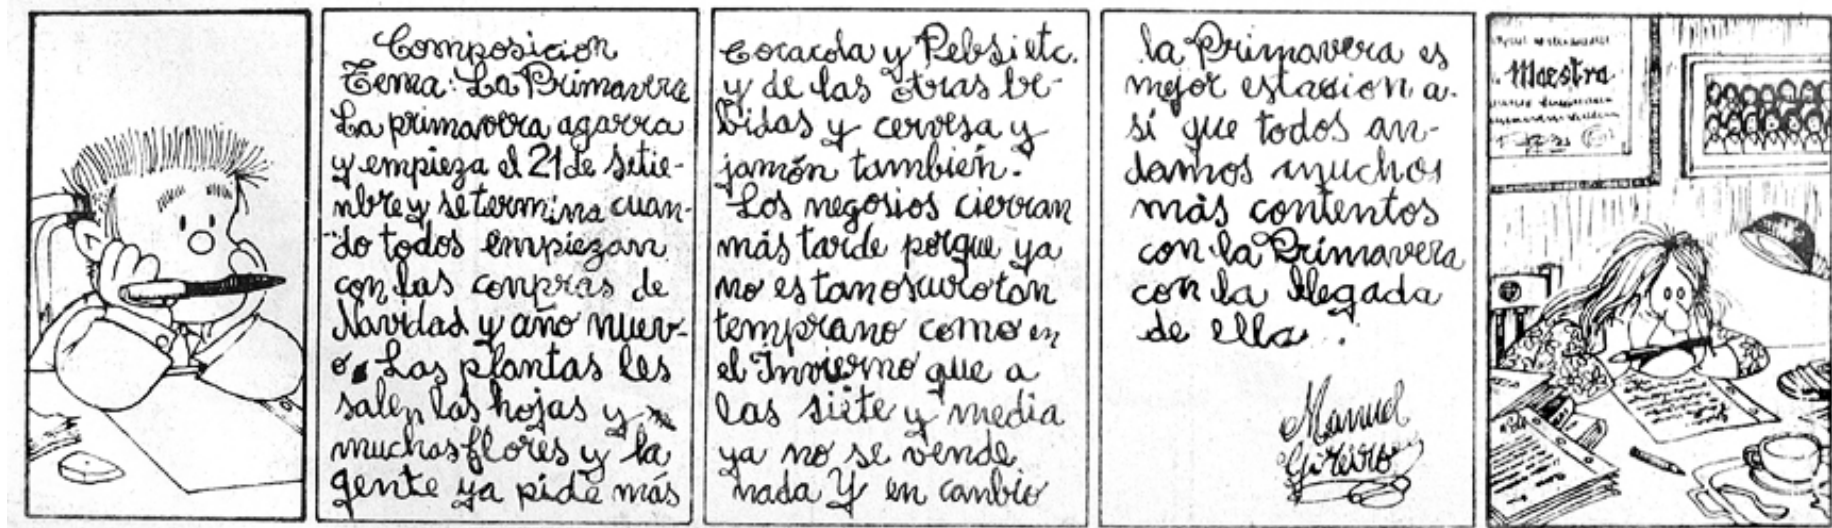 Composicion
Tema: La Primavera
La primavera agarra
y empieza el 21 de setie-
nbre y se termina cuan-
do todos empiezan
con las conpras de
Navidad y año nuev-
o. Las plantas les
salen las hojas y
muchas flores y la
gente ya pide más
Cocacola y Pebsi etc.
y de las otras be-
bidas y cervesa y
jamón también.
Los negosios cierran
más tarde porque ya
no es tan oscuro tan
temprano como en
el Invierno que a
las siete y media
ya no se vende
nada Y en canbio
la Primavera es
mejor estasion a-
sí que todos an-
damos muchos
más contentos
con la Primavera
con la llegada
de ella.
Manuel
Goreiro
Maestra